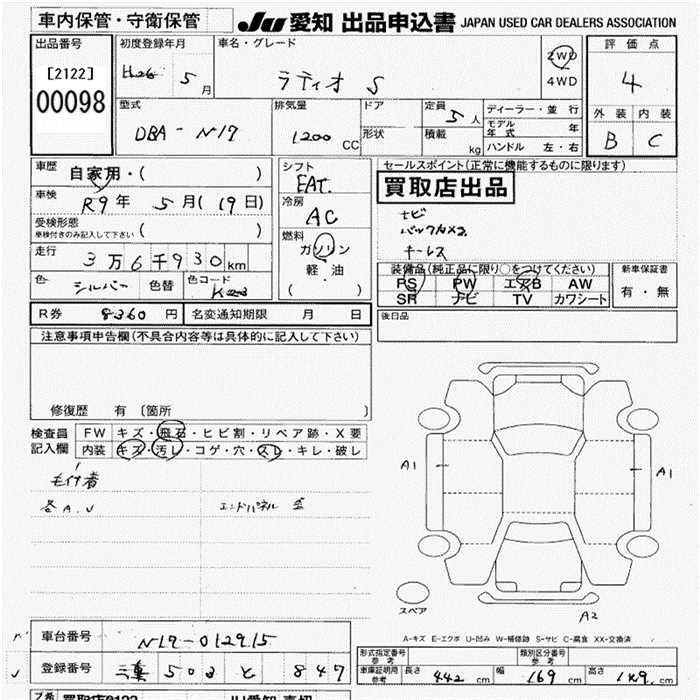 車内保管・守衛保管
JU 愛知 出品申込書 JAPAN USED CAR DEALERS ASSOCIATION
出品番号
[2122]
00098
初度登録年月
H26 5 月
車名・グレード
ラティオ S
2WD
4WD
評価点
4
外装 内装
B C
型式
DBA - N17
排気量
1200 CC
ドア
形状
定員
5 人
積載
kg
ディーラー・並行
モデル年式 年
ハンドル 左・右
車歴
自家用・( )
車検
R9年 5月(19日)
受検形態
車検付きのみ記入して下さい ( )
走行
3万6千930km
色
シルバー
色替
色コード
シフト
FAT.
冷房
AC
燃料
ガソリン
軽油
( )
セールスポイント(正常に機能するものに限ります)
買取店出品
ナビ
バックカメラ
キーレス
装備品(純正品に限り○をつけてください)
PS PW エアB AW
SR ナビ TV カワシート
新車保証書
有・無
R券 8360 円
名変通知期限 月 日
後日品
注意事項申告欄(不具合内容等は具体的に記入して下さい)
修復歴 有 〔箇所 〕
検査員
記入欄
FW キズ・飛石・ヒビ割・リペア跡・X要
内装 キズ・汚レ・コゲ・穴・スレ・キレ・破レ
各A.U
エンドパネル
A1
A1
スペア
A2
A-キズ E-エクボ U-凹み W-補修跡 S-サビ C-腐食 XX-交換済
車台番号
N17-012915
登録番号
三重 503 と 847
形式指定番号
参考
類別区分番号
参考
車庫証明用
参考
長さ 442 cm
幅 169 cm
高さ 149 cm
買取店0122
JU愛知